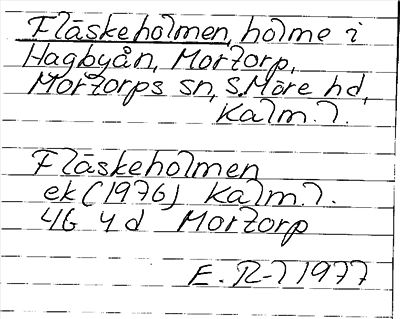 Fläskeholmen, holme i
Hagbyån, Mortorp,
Mortorps sn, S. Möre hd,
Kalm. l.
Fläskeholmen
ek (1976) Kalm. l.
4G 4d Mortorp
E. R-l 1977